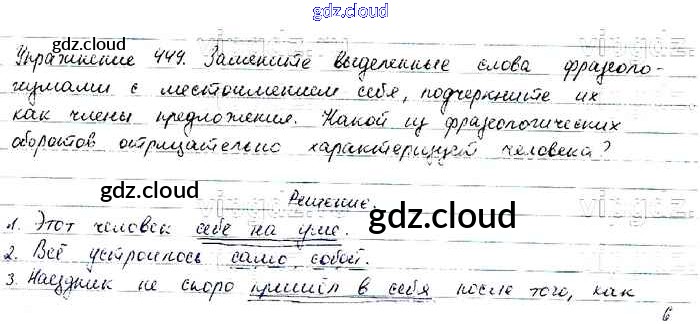 gdz.cloud
Упражнение 449. Замените выделенные слова фразеоло-
gdz.cloud
гизмами с местоимением себя, подчеркните их
как члены предложения. Какой из фразеологических
оборотов отрицательно характеризует человека?
gdz.cloud
Решение.
gdz.cloud
1. Этот человек себе на уме.
2. Всё устроилось само собой.
3. Наездник не скоро пришёл в себя после того, как
6